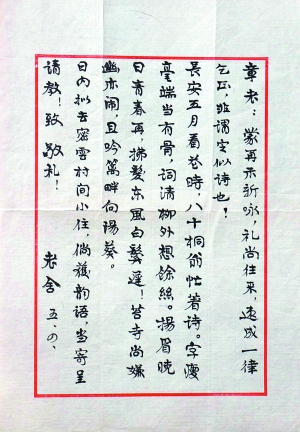 章老：蒙再示新咏，礼尚往来，速成一律
乞正，非谓定似诗也！
長安五月看花時，八十桐翁忙著诗。字瘦
毫端当有骨，词清柳外想餘絲。揚眉晓
日青春再，拂鬓东風白髮遲！苔寺尚嫌
幽亦闹，且吟篱畔向陽葵。
日内拟去密雲村间小住，倘獲韵语，当寄呈
请教！致 敬礼！
老舍 五、の、